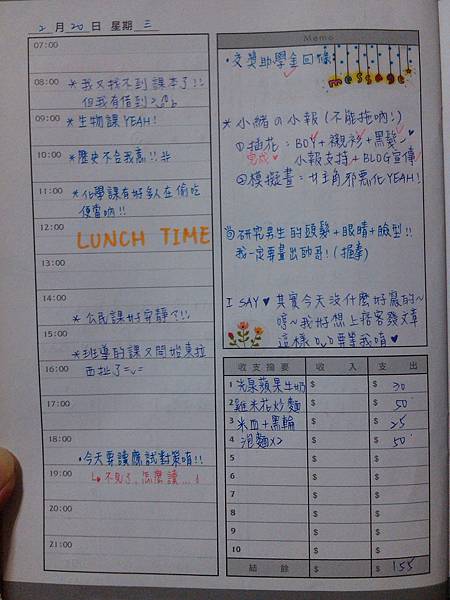 2月20日 星期三
07:00
08:00
*我又找不到課本了!!
但我有借到
09:00
*生物課YEAH!
10:00
*歷史不合我意!!#
11:00
*化學課有好多人在偷吃
便當吶!!
12:00
LUNCH TIME
13:00
14:00
*公民課好安靜
15:00
*班導的課又開始東拉
16:00
西扯了=v=
17:00
18:00
•今天要讀應試對策唷!!
19:00
↳不見了,怎麼讀...
20:00
21:00
Memo
•交獎助學金回條
message
*小緒の小報(不能拖吶!)
①插花:BOY+襯衫+黑髮
完成♥ 小報支持+BLOG宣傳
②模擬畫:廿角不惡化YEAH!
研究男生的頭髮+眼睛+臉型!!
我一定要畫出帥哥!(握拳)
I SAY♥其實今天沒什麼好寫的~
唷~我好想上痞客發文章
這樣OvO要等我唷♥
收支摘要 收 入 支 出
1 光泉蘋果牛奶 $ $ 30
2 雞米花炒麵 $ $ 50
3 米血+黑輪 $ $ 25
4 泡麵x2 $ $ 50
5 $ $
6 $ $
7 $ $
8 $ $
9 $ $
10 $ $
結 餘 $ $ 155